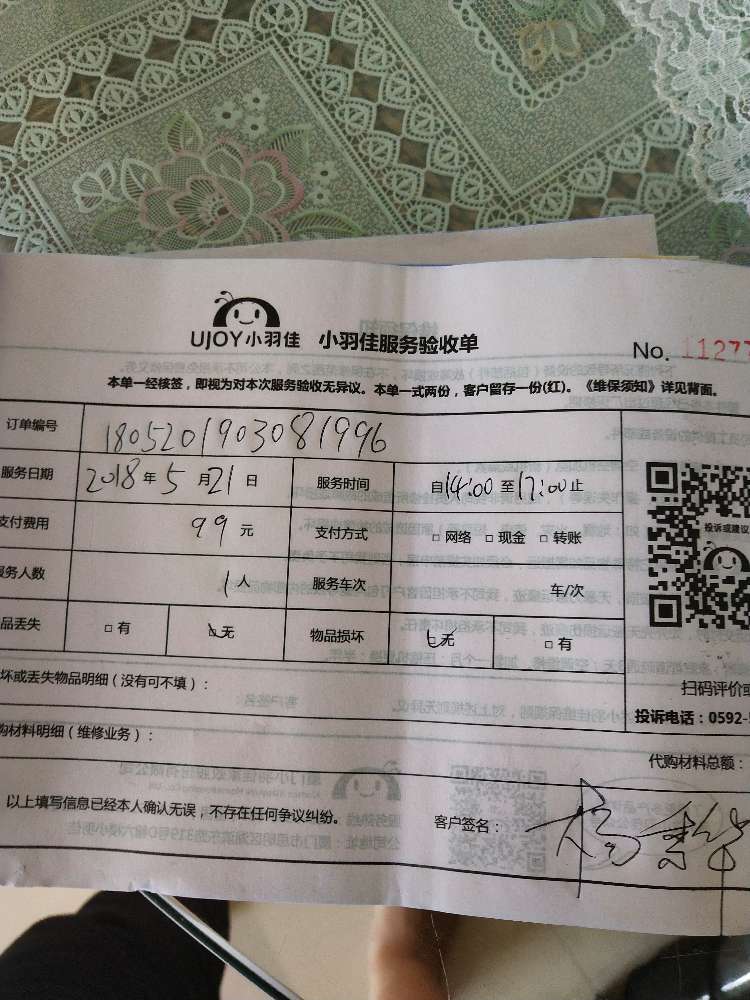 UJOY小羽佳 小羽佳服务验收单
No. 11277
本单一经核签，即视为对本次服务验收无异议。本单一式两份，客户留存一份(红)。《维保须知》详见背面。
订单编号 180520190308­1996
服务日期 2018年5月21日 服务时间 自14:00至17:00止
支付费用 99元 支付方式 □网络 □现金 □转账
服务人数 1人 服务车次 车/次
品丢失 □有 □无 物品损坏 □无 □有
投诉或建议
坏或丢失物品明细（没有可不填）：
扫码评价或
投诉电话：0592-
购材料明细（维修业务）：
代购材料总额：
以上填写信息已经本人确认无误，不存在任何争议纠纷。
客户签名：